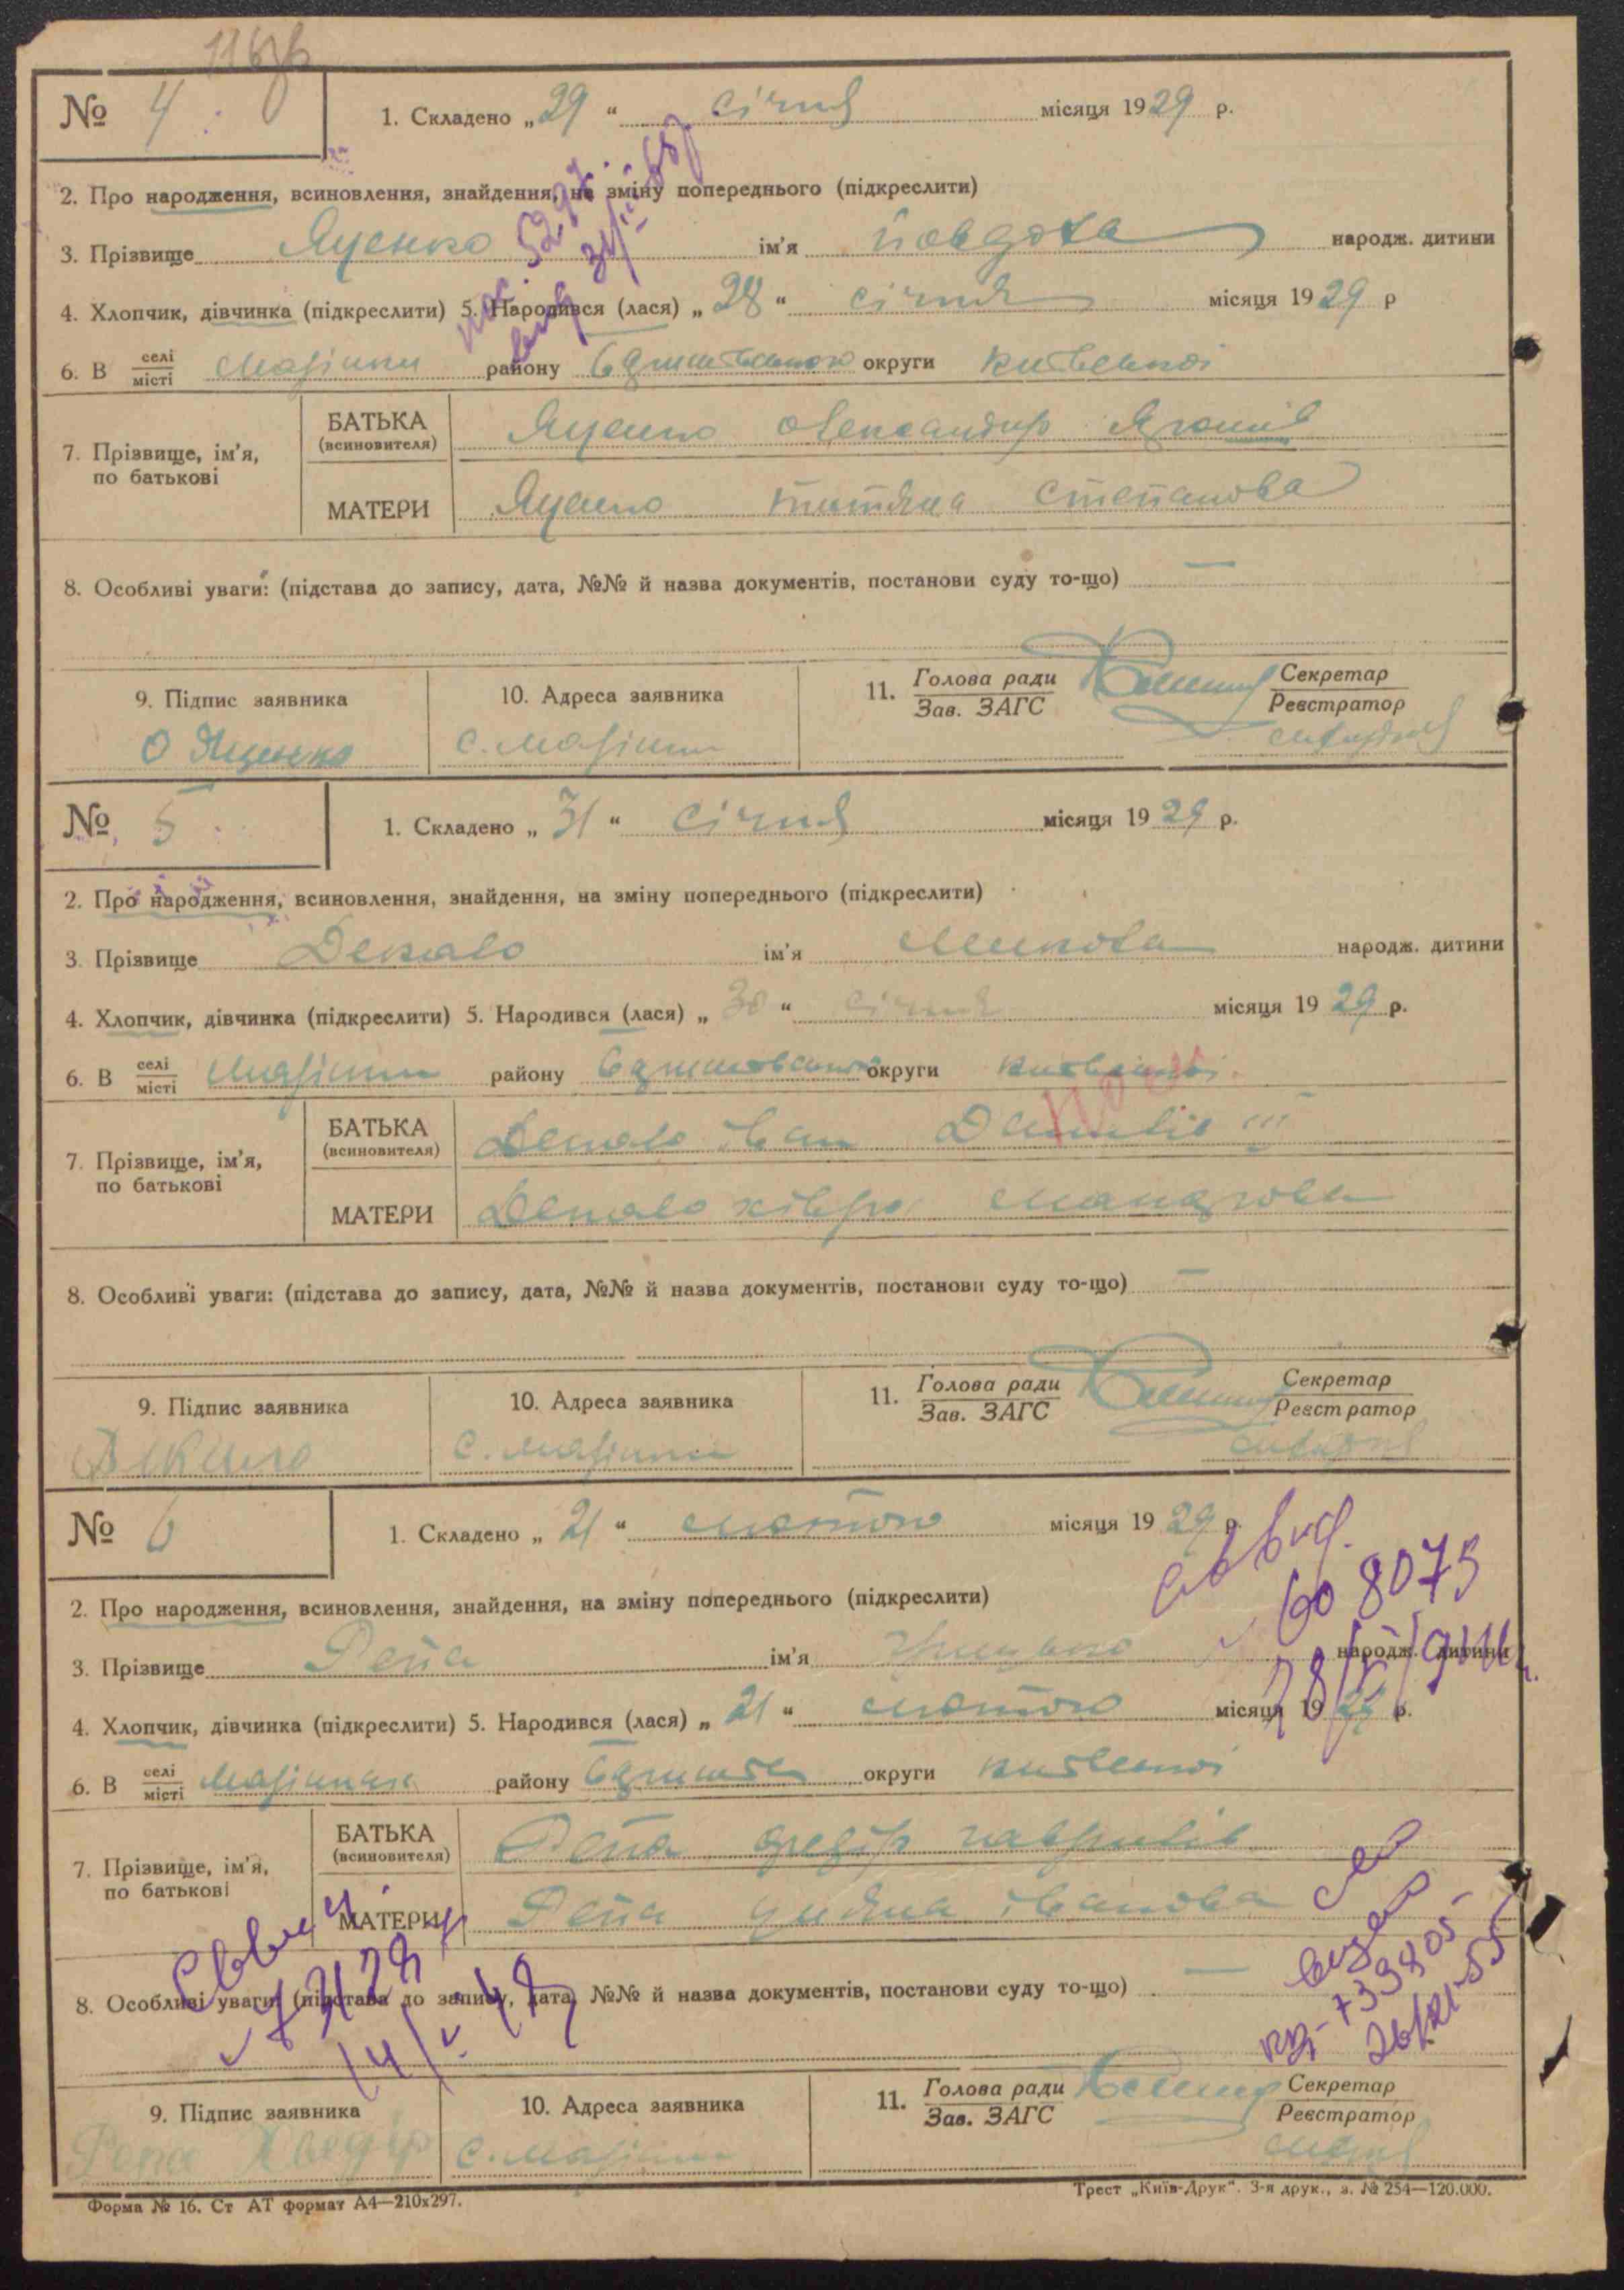 № 4
1. Складено „29“ січня місяця 1929 р.
2. Про народження, всиновлення, знайдення, на зміну попереднього (підкреслити)
3. Прізвище Яценко ім'я Йовдоха народж. дитини
4. Хлопчик, дівчинка (підкреслити) 5. Народився (лася) „28“ січня місяця 1929 р
6. В селі місті Мар'їнки району округи Київської
7. Прізвище, ім'я, по батькові
БАТЬКА (всиновителя) Яценко Олександир
МАТЕРИ Яценко Титяна Степанова
8. Особливі уваги: (підстава до запису, дата, №№ й назва документів, постанови суду то-що) —
9. Підпис заявника
10. Адреса заявника
11. Голова ради Зав. ЗАГС
Секретар Реєстратор
О Яценко
с. Мар'їнки
№ 5
1. Складено „31“ січня місяця 1929 р.
2. Про народження, всиновлення, знайдення, на зміну попереднього (підкреслити)
3. Прізвище Декало ім'я Микола народж. дитини
4. Хлопчик, дівчинка (підкреслити) 5. Народився (лася) „30“ січня місяця 1929 р.
6. В селі місті Мар'їнки району округи Київської
7. Прізвище, ім'я, по батькові
БАТЬКА (всиновителя) Декало Іван
МАТЕРИ Декало Хівря
8. Особливі уваги: (підстава до запису, дата, №№ й назва документів, постанови суду то-що) —
9. Підпис заявника
10. Адреса заявника
11. Голова ради Зав. ЗАГС
Секретар Реєстратор
с. Мар'їнки
№ 6
1. Складено „21“ лютого місяця 1929 р.
2. Про народження, всиновлення, знайдення, на зміну попереднього (підкреслити)
3. Прізвище Репа ім'я народж. дитини
4. Хлопчик, дівчинка (підкреслити) 5. Народився (лася) „21“ лютого місяця 1929 р.
6. В селі місті району округи Київської
7. Прізвище, ім'я, по батькові
БАТЬКА (всиновителя) Репа Федір Гаврилів
МАТЕРИ Репа Уляна Іванова
8. Особливі уваги: (підстава до запису, дата, №№ й назва документів, постанови суду то-що) —
9. Підпис заявника
10. Адреса заявника
11. Голова ради Зав. ЗАГС
Секретар Реєстратор
Репа Хведір
с. Мар'їнки
Форма № 16. Ст АТ формат А4—210х297.
Трест „Київ-Друк“. 3-я друк., з. № 254—120.000.